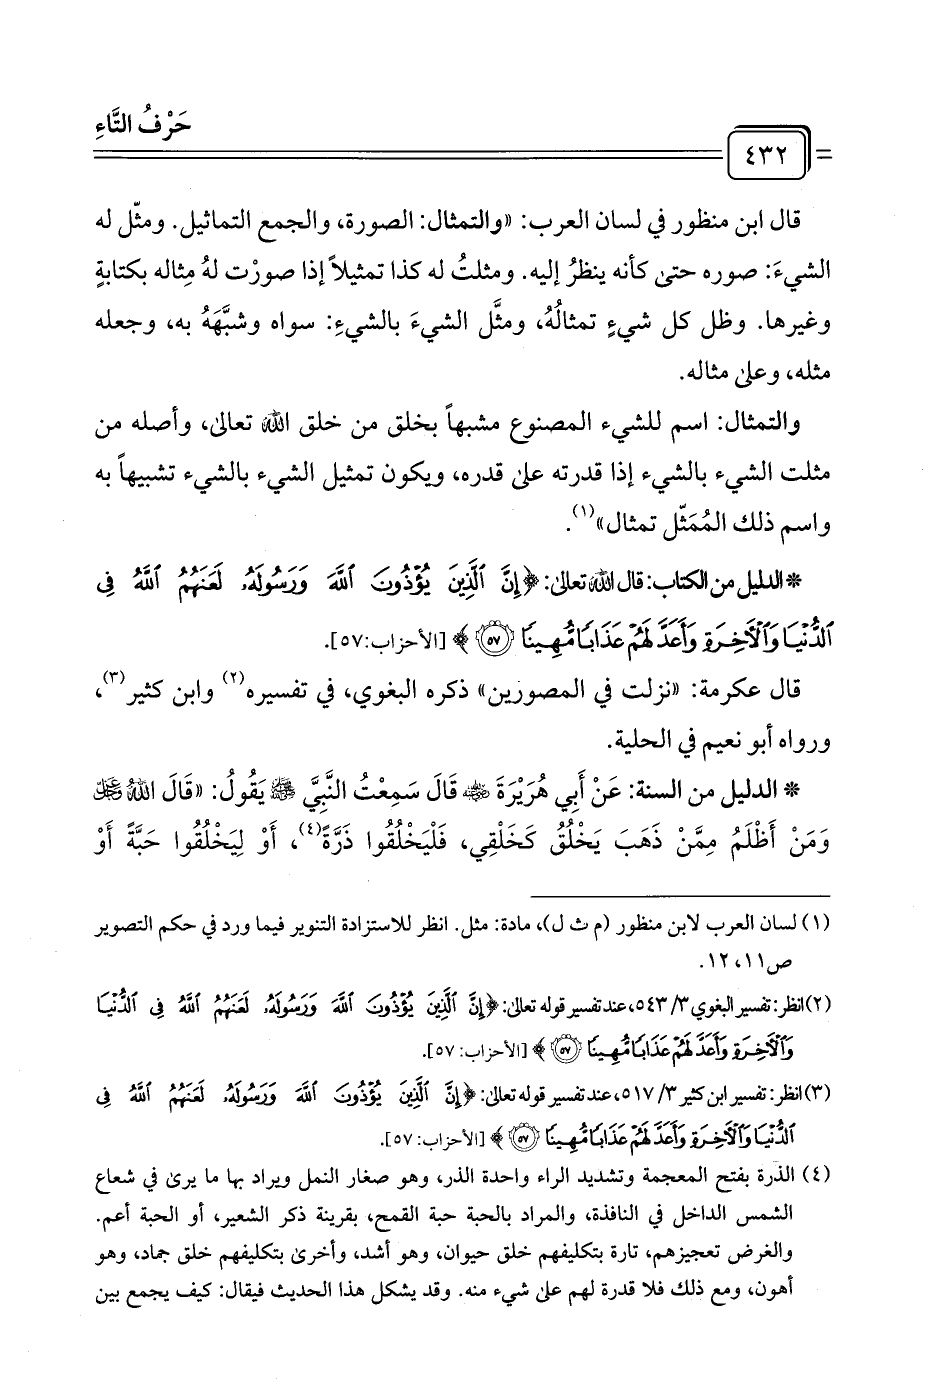 حَرْفُ التَّاءِ
٤٣٢
قال ابن منظور في لسان العرب: «والتمثال: الصورة، والجمع التماثيل. ومثّل له
الشيءَ: صوره حتى كأنه ينظرُ إليه. ومثلتُ له كذا تمثيلاً إذا صورْت لهُ مِثاله بكتابةٍ
وغيرها. وظل كل شيءٍ تمثالُهُ، ومثَّل الشيءَ بالشيءِ: سواه وشبَّهَهُ به، وجعله
مثله، وعلى مثاله.
والتمثال: اسم للشيء المصنوع مشبهاً بخلق من خلق الله تعالى، وأصله من
مثلت الشيء بالشيء إذا قدرته على قدره، ويكون تمثيل الشيء بالشيء تشبيهاً به
واسم ذلك المُمَثّل تمثال»(١).
* الدليل من الكتاب: قال الله تعالى: ﴿إِنَّ ٱلَّذِينَ يُؤۡذُونَ ٱللَّهَ وَرَسُولَهُۥ لَعَنَهُمُ ٱللَّهُ فِى
ٱلدُّنۡيَا وَٱلۡأَخِرَةِ وَأَعَدَّ لَهُمۡ عَذَابًا مُّهِينًا ٥٧﴾ [الأحزاب:٥٧].
قال عكرمة: «نزلت في المصورين» ذكره البغوي، في تفسيره(٢) وابن كثير(٣)،
ورواه أبو نعيم في الحلية.
* الدليل من السنة: عَنْ أَبِي هُرَيْرَةَ ﵁ قَالَ سَمِعْتُ النَّبِيَّ ﷺ يَقُولُ: «قَالَ اللهُ ﷿
وَمَنْ أَظْلَمُ مِمَّنْ ذَهَبَ يَخْلُقُ كَخَلْقِي، فَلْيَخْلُقُوا ذَرَّةً(٤)، أَوْ لِيَخْلُقُوا حَبَّةً أَوْ
(١) لسان العرب لابن منظور (م ث ل)، مادة: مثل. انظر للاستزادة التنوير فيما ورد في حكم التصوير
ص١١، ١٢.
(٢) انظر: تفسير البغوي ٣/ ٥٤٣، عند تفسير قوله تعالى: ﴿إِنَّ ٱلَّذِينَ يُؤۡذُونَ ٱللَّهَ وَرَسُولَهُۥ لَعَنَهُمُ ٱللَّهُ فِى ٱلدُّنۡيَا
وَٱلۡأَخِرَةِ وَأَعَدَّ لَهُمۡ عَذَابًا مُّهِينًا ٥٧﴾ [الأحزاب: ٥٧].
(٣) انظر: تفسير ابن كثير ٣/ ٥١٧، عند تفسير قوله تعالى: ﴿إِنَّ ٱلَّذِينَ يُؤۡذُونَ ٱللَّهَ وَرَسُولَهُۥ لَعَنَهُمُ ٱللَّهُ فِى
ٱلدُّنۡيَا وَٱلۡأَخِرَةِ وَأَعَدَّ لَهُمۡ عَذَابًا مُّهِينًا ٥٧﴾ [الأحزاب: ٥٧].
(٤) الذرة بفتح المعجمة وتشديد الراء واحدة الذر، وهو صغار النمل ويراد بها ما يرى في شعاع
الشمس الداخل في النافذة، والمراد بالحبة حبة القمح، بقرينة ذكر الشعير، أو الحبة أعم.
والغرض تعجيزهم، تارة بتكليفهم خلق حيوان، وهو أشد، وأخرى بتكليفهم خلق جماد، وهو
أهون، ومع ذلك فلا قدرة لهم على شيء منه. وقد يشكل هذا الحديث فيقال: كيف يجمع بين